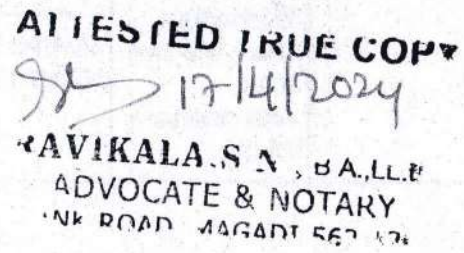 ATTESTED TRUE COPY
17/4/2024
RAVIKALA.S N, B A.,LL.B
ADVOCATE & NOTARY
ROAD, MAGADI